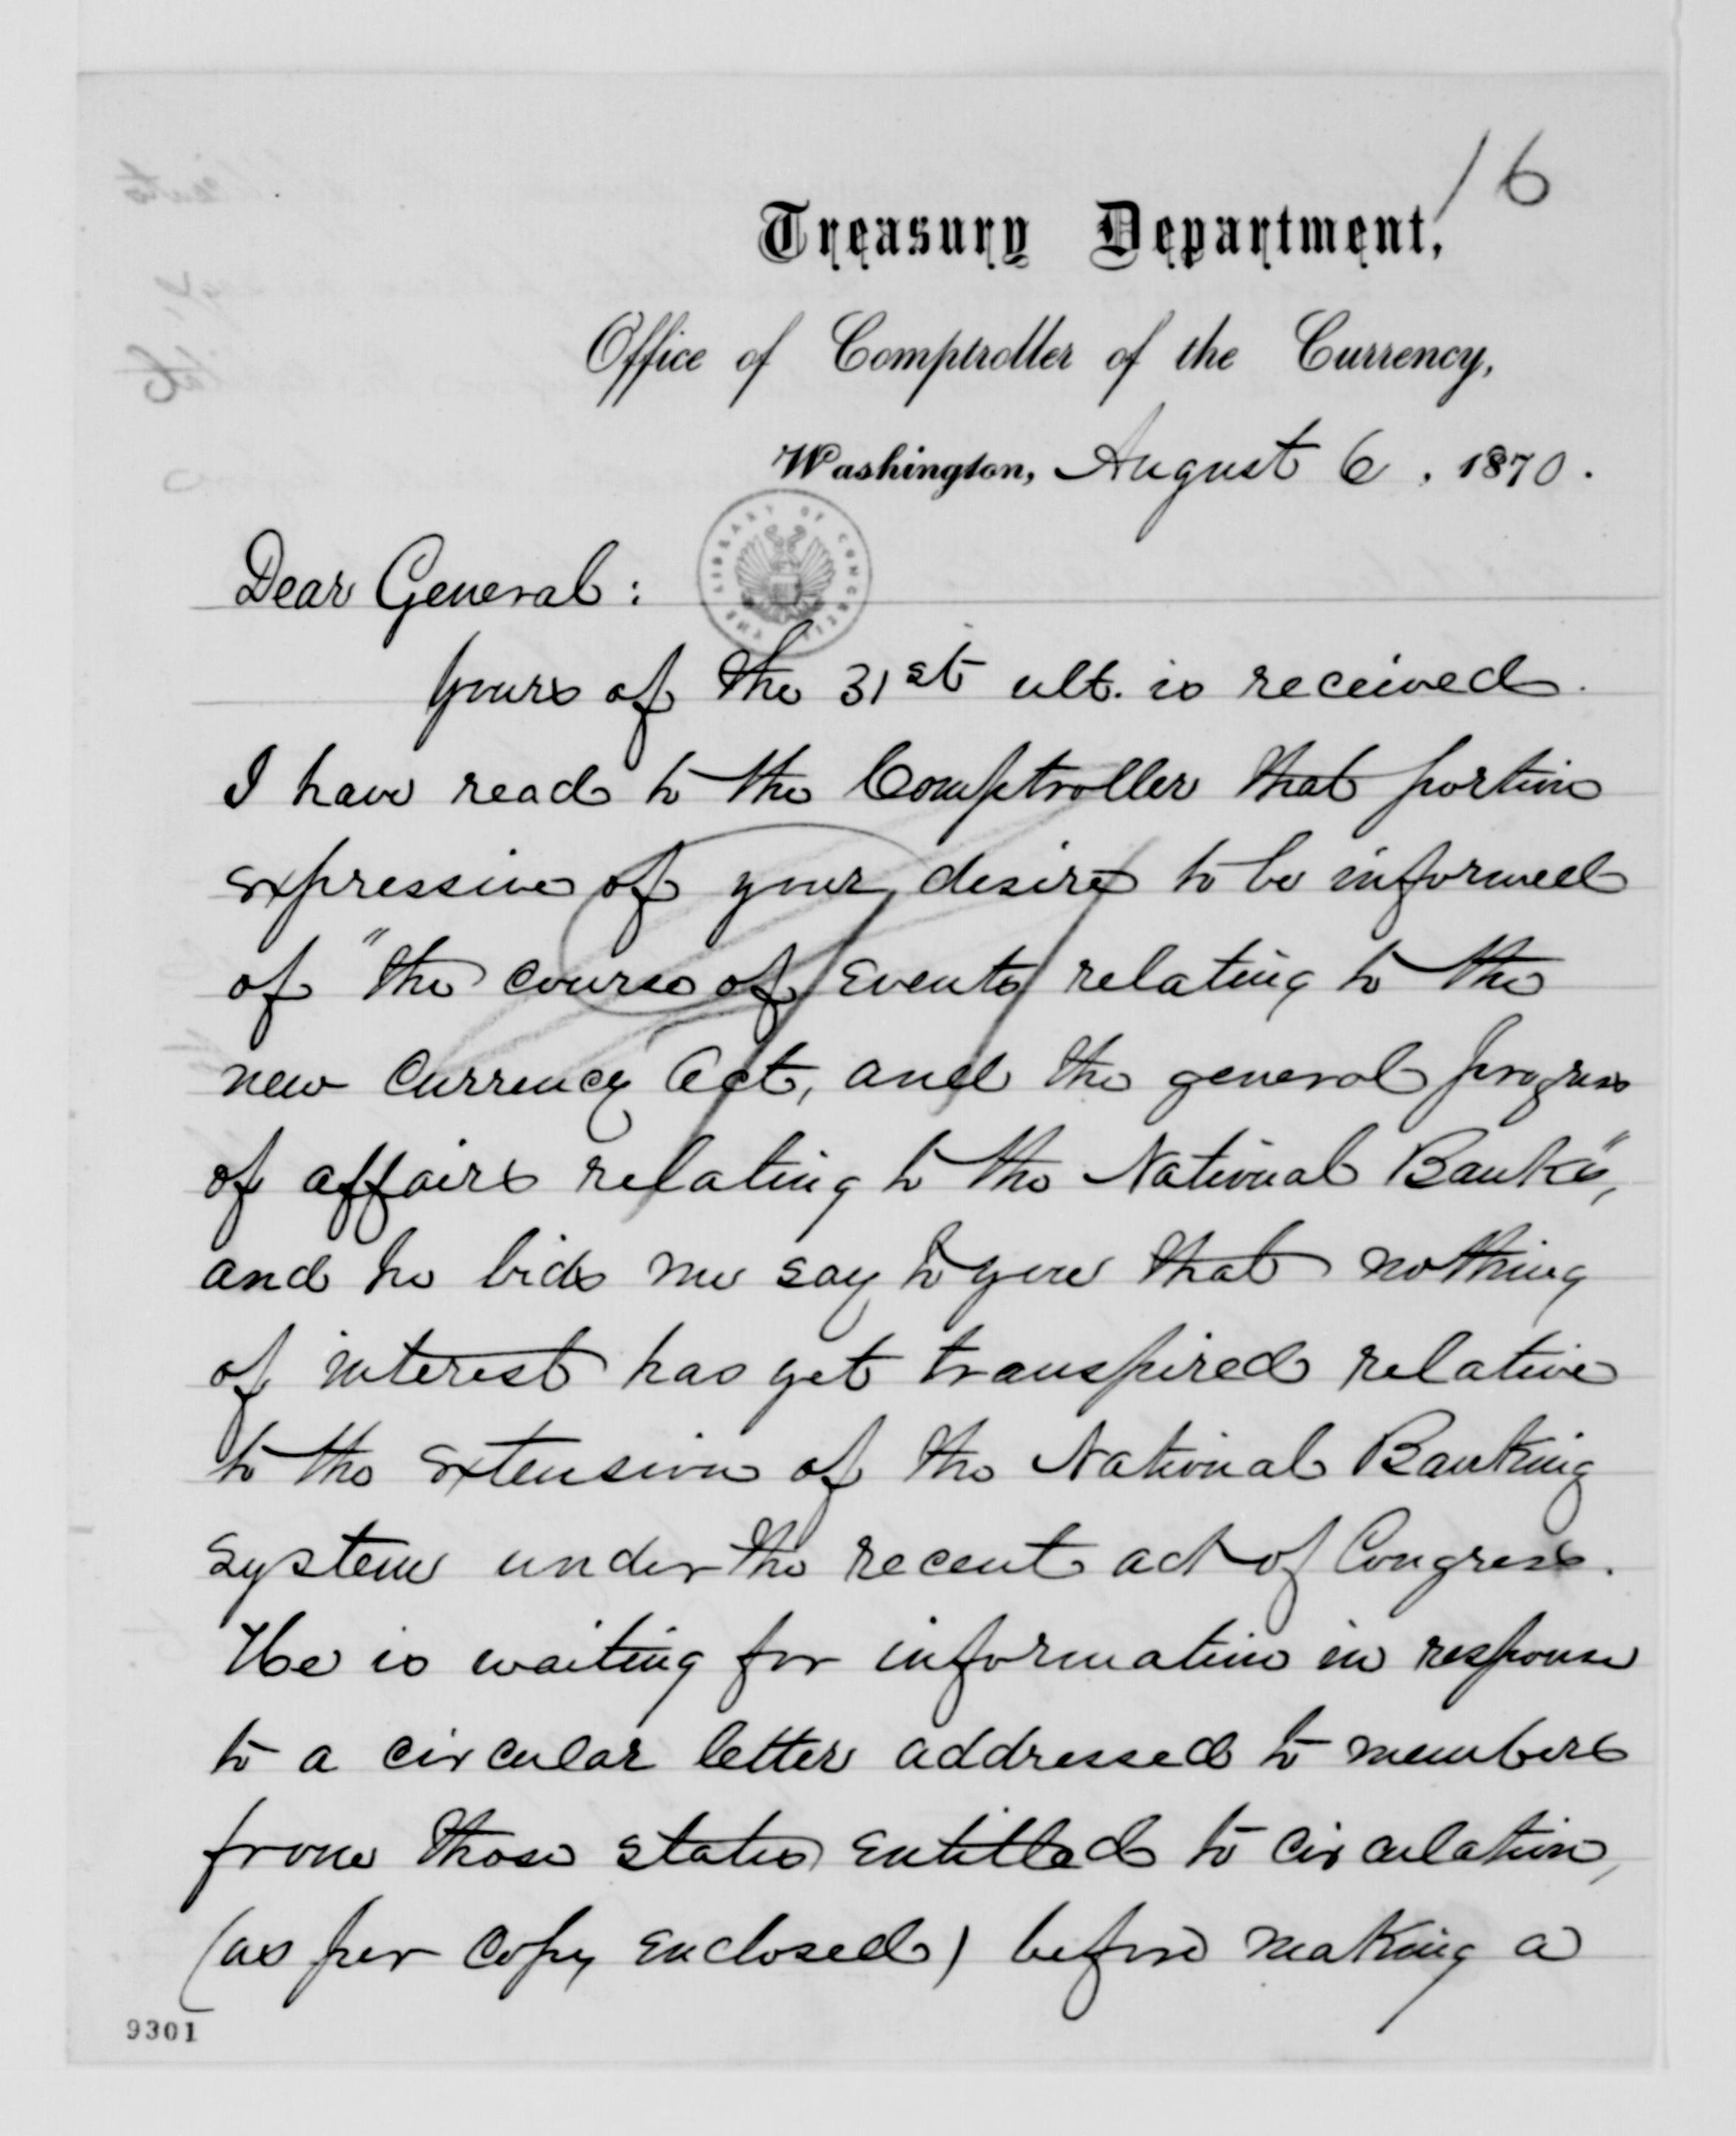 16
Treasury Department,
Office of Comptroller of the Currency,
Washington, August 6, 1870.
THE LIBRARY OF CONGRESS
Dear General:
Yours of the 31st ult. is received.
I have read to the Comptroller that portion
expressive of your desire to be informed
of "the course of events relating to the
new Currency Act, and the general progress
of affairs relating to the National Banks",
and he bids me say to you that nothing
of interest has yet transpired relative
to the extension of the National Banking
system under the recent act of Congress.
He is waiting for information in response
to a circular letter addressed to members
from those states entitled to circulation,
(as per copy enclosed) before making a
9301